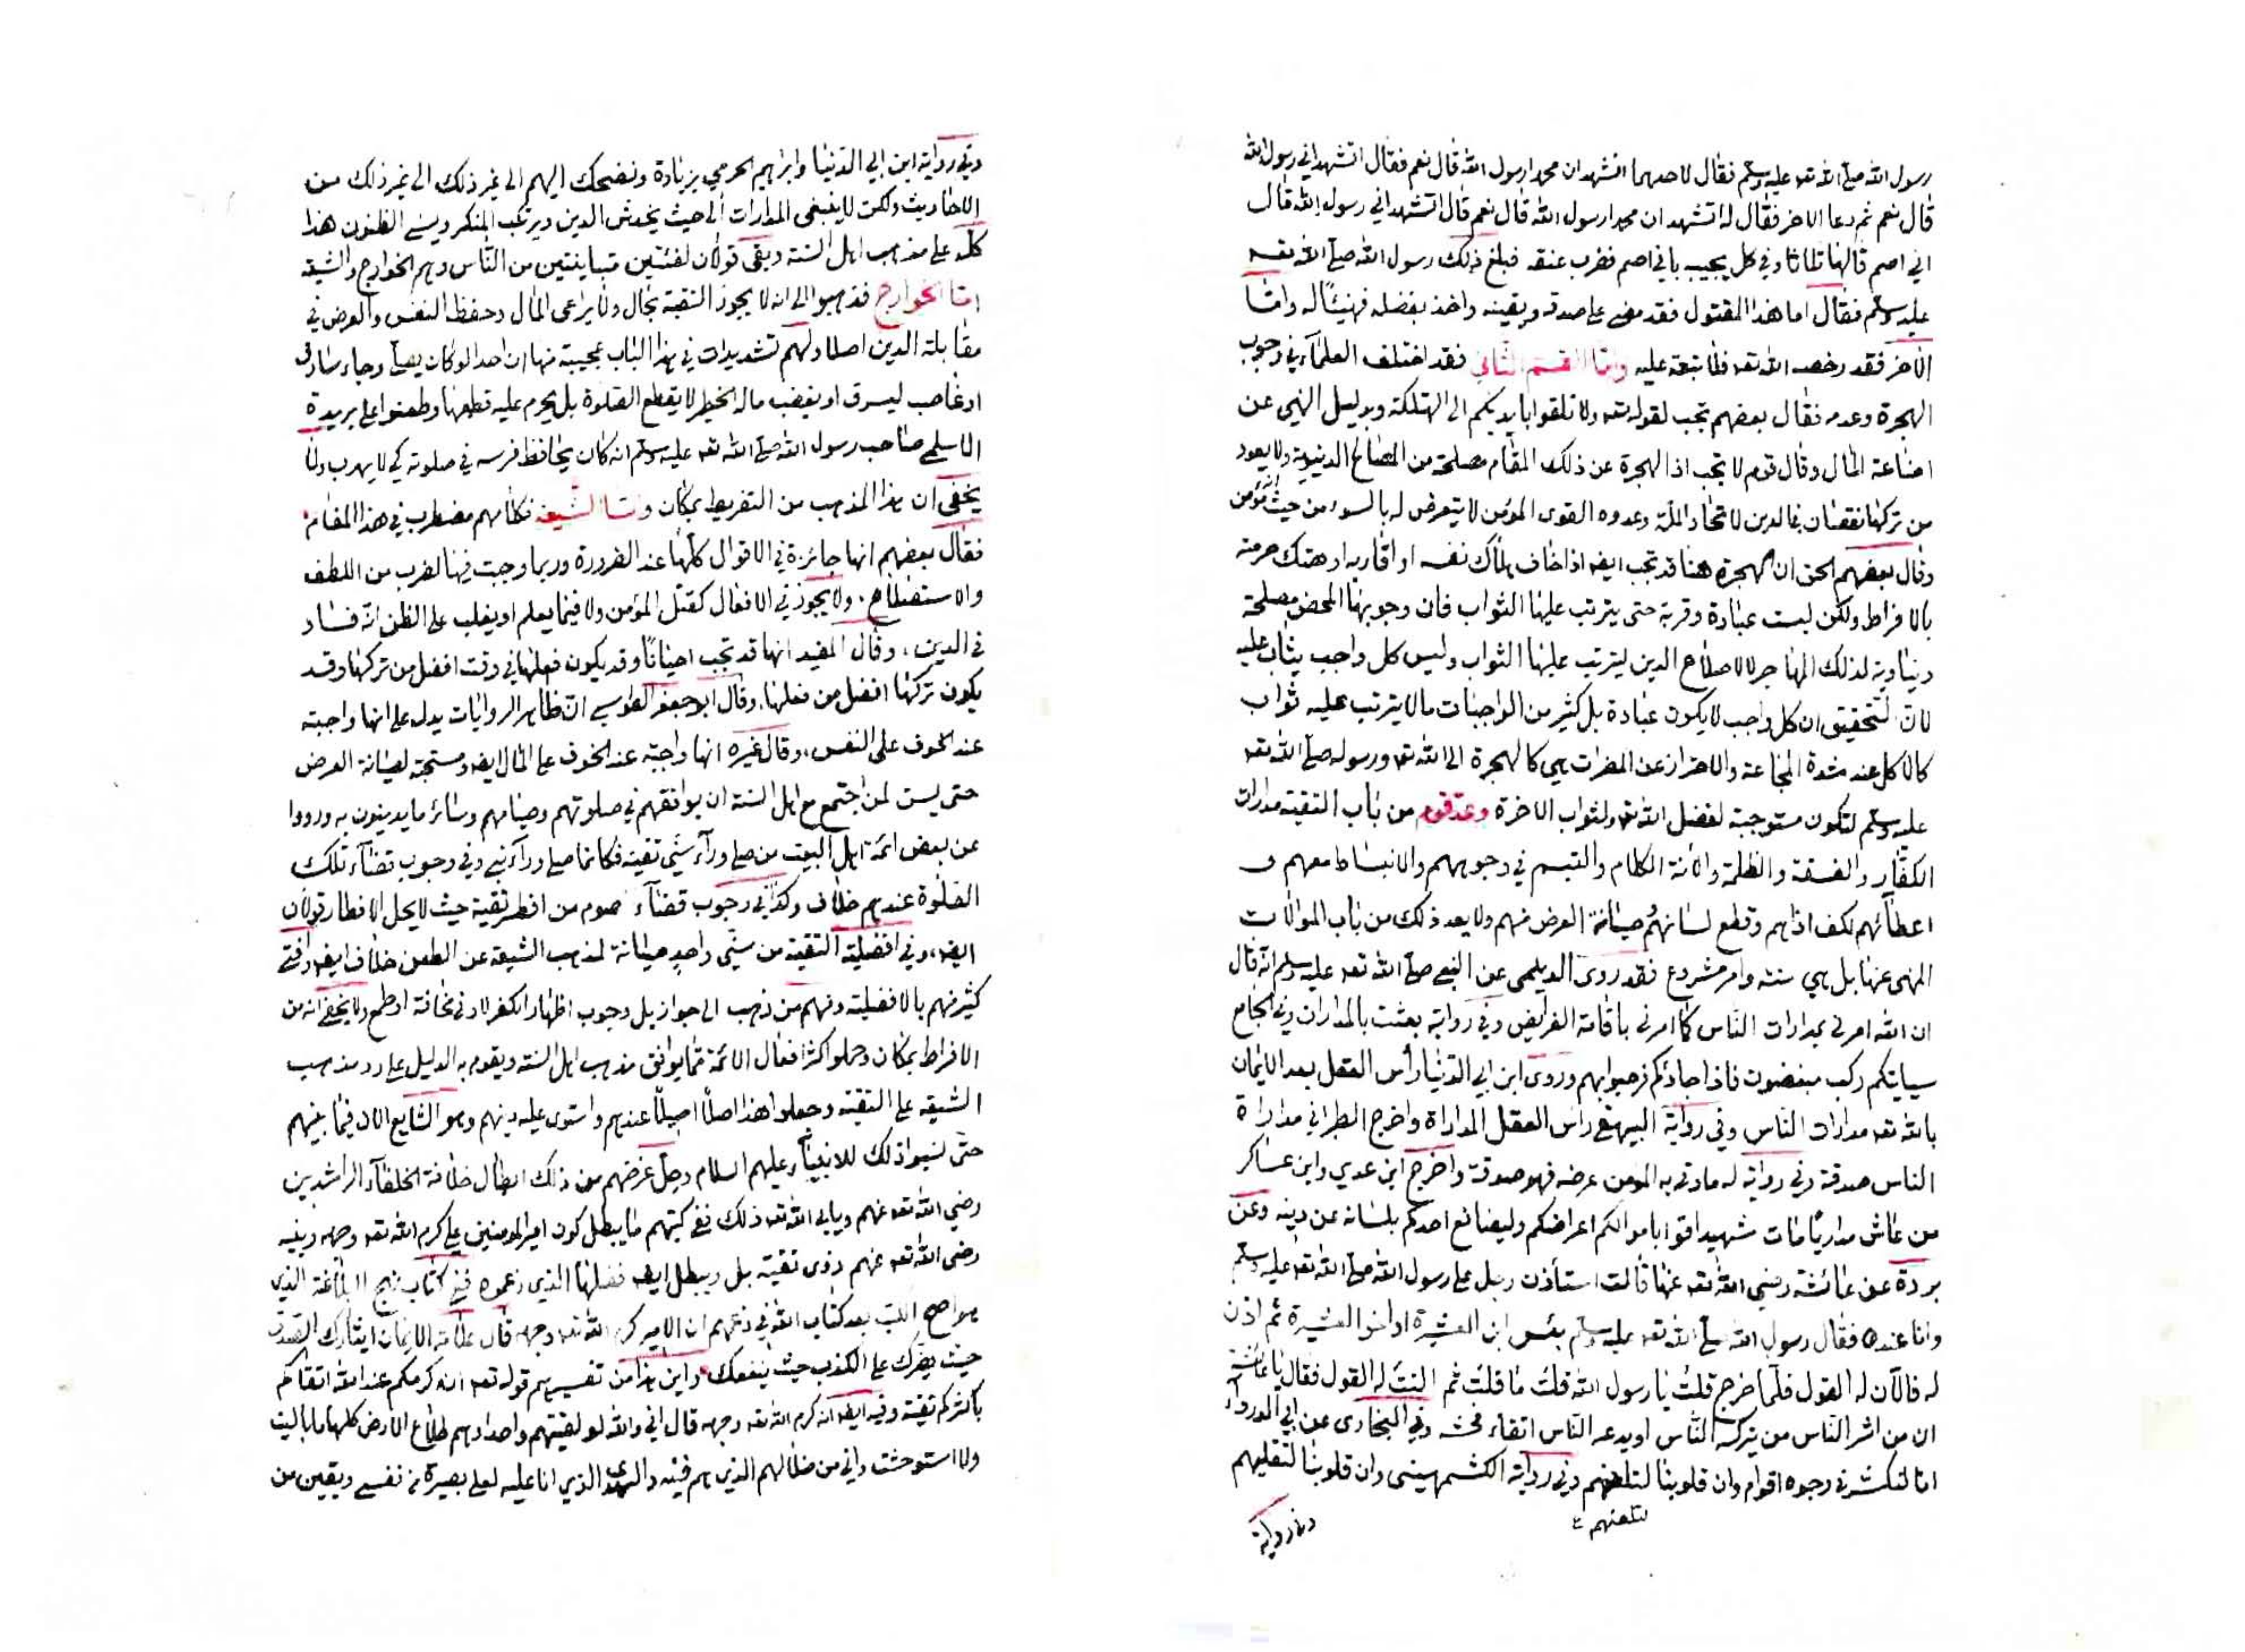 رسول الله صلى الله تعه عليه وسلم فقال لاحدهما اتشهد ان محمدا رسول الله قال نعم فقال اتشهد اني رسول الله
قال نعم ثم دعا الاخر فقال له اتشهد ان محمدا رسول الله قال نعم قال اتشهد اني رسول الله قال
اني اصم قالها ثلاثا وفي كل يجيب باني اصم فضرب عنقه فبلغ ذلك رسول الله صلى الله تعه
عليه وسلم فقال اما هذا المقتول فقد مضى على صدقه ويقينه واخذ بفضله فهنيئا له واما
الاخر فقد رخصه الله تعه فلا تبعة عليه واما القسم الثاني فقد اختلف العلماء في وجوب
الهجرة وعدمه فقال بعضهم تجب لقوله تعه ولا تلقوا بايديكم الى التهلكة وبدليل النهي عن
اضاعة المال وقال قوم لا تجب اذ الهجرة عن ذلك المقام مصلحة من المصالح الدنيوية ولا يعود
من تركها نقصان في الدين لاتحاد الملة وعدوه القوى المؤمن لا يتعرض له بالسوء من حيث انه مؤمن
وقال بعضهم الحق ان الهجرة هنا قد تجب ايضا اذا خاف هلاك نفسه او اقاربه او هتك حرمته
بالافراط ولكن ليست عبادة وقربة حتى يترتب عليها الثواب فان وجوبها لمحض مصلحة
دنياوية لذلك المهاجر لا لاصلاح الدين ليترتب عليها الثواب وليس كل واجب يثاب عليه
لان التحقيق ان كل واجب لا يكون عبادة بل كثير من الواجبات ما لا يترتب عليه ثواب
كالاكل عند شدة المجاعة والاحتراز عن المضرات هي كالهجرة الى الله تعه ورسوله صلى الله تعه
عليه وسلم لتكون مستوجبة لفضل الله تعه ولثواب الاخرة وعد قوم من باب التقية مدارات
الكفار والفسقة والظلمة والانة الكلام والتبسم في وجوههم والانبساط معهم و
اعطائهم لكف اذاهم وقطع لسانهم وصيانة العرض منهم ولا يعد ذلك من باب الموالات
المنهى عنها بل هي سنة وامر مشروع فقد روى الديلمى عن النبى صلى الله تعه عليه وسلم انه قال
ان الله امرنى بمدارات الناس كما امرنى باقامة الفرايض وفي رواية بعثت بالمدارات وفي الجامع
سياتيكم ركب مبغضون فاذا جاؤكم فرحبوا بهم وروى ابن ابي الدنيا رأس العقل بعد الايمان
بالله تعه مدارات الناس وفي رواية البيهقى رأس العقل المداراة واخرج الطبراني مداراة
الناس صدقة وفي رواية له ما وقى به المؤمن عرضه فهو صدقة واخرج ابن عدي وابن عساكر
من عاش مداريا مات شهيدا قوا باموالكم اعراضكم وليصانع احدكم بلسانه عن دينه وعن
بردة عن عائشة رضي الله تعه عنها قالت استأذن رجل على رسول الله صلى الله تعه عليه وسلم
وانا عنده فقال رسول الله صلى الله تعه عليه وسلم بئس ابن العشيرة او اخو العشيرة ثم اذن
له فالآن له القول فلما خرج قلت يا رسول الله قلت ما قلت ثم النت له القول فقال يا عائشة
ان من اشر الناس من يتركه الناس او يدعه الناس اتقاء فحشه وفي البخارى عن ابي الدرداء
انا لنكشر في وجوه اقوام وان قلوبنا لتلعنهم وفي رواية الكشمهينى وان قلوبنا لتقليهم
لتلعنهم
وفي رواية
وفي رواية ابن ابي الدنيا وابراهيم الحرمي بزيادة ونضحك اليهم الى غير ذلك الى غير ذلك من
الاحاديث ولكن لا ينبغى المدارات الى حيث يخدش الدين ويرتكب المنكر ويسئ الظنون هذا
كله على مذهب اهل السنة وبقى قولان لفئتين متباينتين من الناس وهم الخوارج والشيعة
اما الخوارج فذهبوا الى انه لا يجوز التقية بحال ولا يراعى المال وحفظ النفس والعرض في
مقابلة الدين اصلا ولهم تشديدات في هذا الباب عجيبة منها ان احدا لو كان يصلى وجاء سارق
او غاصب ليسرق او يغصب ماله الخطير لا يقطع الصلوة بل يحرم عليه قطعها وطعنوا على بريدة
الاسلمى صاحب رسول الله صلى الله تعه عليه وسلم انه كان يحافظ فرسه في صلوته كي لا يهرب ولا
يخفى ان هذا المذهب من التفريط بمكان واما الشيعة فكلامهم مضطرب في هذا المقام
فقال بعضهم انها جائزة في الاقوال كلها عند الضرورة وربما وجبت فيها لضرب من اللطف
والاستصلاح ولا يجوز في الافعال كقتل المؤمن ولا فيما يعلم او يغلب على الظن انه فساد
في الدين، وقال المفيد انها قد تجب احيانا وقد يكون فعلها في وقت افضل من تركها وقد
يكون تركها افضل من فعلها، وقال ابو جعفر الطوسي ان ظاهر الروايات يدل على انها واجبة
عند الخوف على النفس، وقال غيره انها واجبة عند الخوف على المال ايضا ومستحبة لصيانة العرض
حتى يسن لمن اجتمع مع اهل السنة ان يوافقهم في صلوتهم وصيامهم وسائر ما يدينون به ورووا
عن بعض ائمة اهل البيت من صلى وراء سنى تقية فكانما صلى وراء نبي وفي وجوب قضاء تلك
الصلوة عندهم خلاف وكذا في وجوب قضاء صوم من افطر تقية حيث لا يحل الافطار قولان
ايضا، وفي افضلية التقية من سنى واحد صيانة لمذهب الشيعة عن الطعن خلاف ايضا وافتى
كثير منهم بالافضلية ومنهم من ذهب الى جواز بل وجوب اظهار الكفر لادنى مخافة او طمع ولا يخفى انه من
الافراط بمكان وحملوا اكثر افعال الائمة مما يوافق مذهب اهل السنة ويقوم به الدليل على رد مذهب
الشيعة على التقية وجعلوا هذا اصلا اصيلا عندهم واستوى عليه دينهم وهو الشايع الان فيما بينهم
حتى نسبوا ذلك للانبياء عليهم السلام وجل غرضهم من ذلك ابطال خلافة الخلفاء الراشدين
رضي الله تعه عنهم ويابى الله تعه ذلك ففى كتبهم ما يبطل كون امير المؤمنين على كرم الله تعه وجهه وبنيه
رضى الله تعه عنهم ذوى تقية بل ويبطل ايضا فضلها الذى زعموه ففى كتاب نهج البلاغة الذى
هو اصح الكتب بعد كتاب الله في زعمهم ان الامير كرم الله تعه وجهه قال علامة الايمان ايثارك الصدق
حيث يضرك على الكذب حيث ينفعك واين هذا من تفسيرهم قوله تعه ان اكرمكم عند الله اتقاكم
باكثركم تقية وفيه ايضا انه كرم الله تعه وجهه قال اني والله لو لقيتهم واحدا وهم طلاع الارض كلها ما باليت
ولا استوحشت واني من ضلالهم الذى هم فيه والهدى الذي انا عليه لعلى بصيرة من نفسى ويقين من